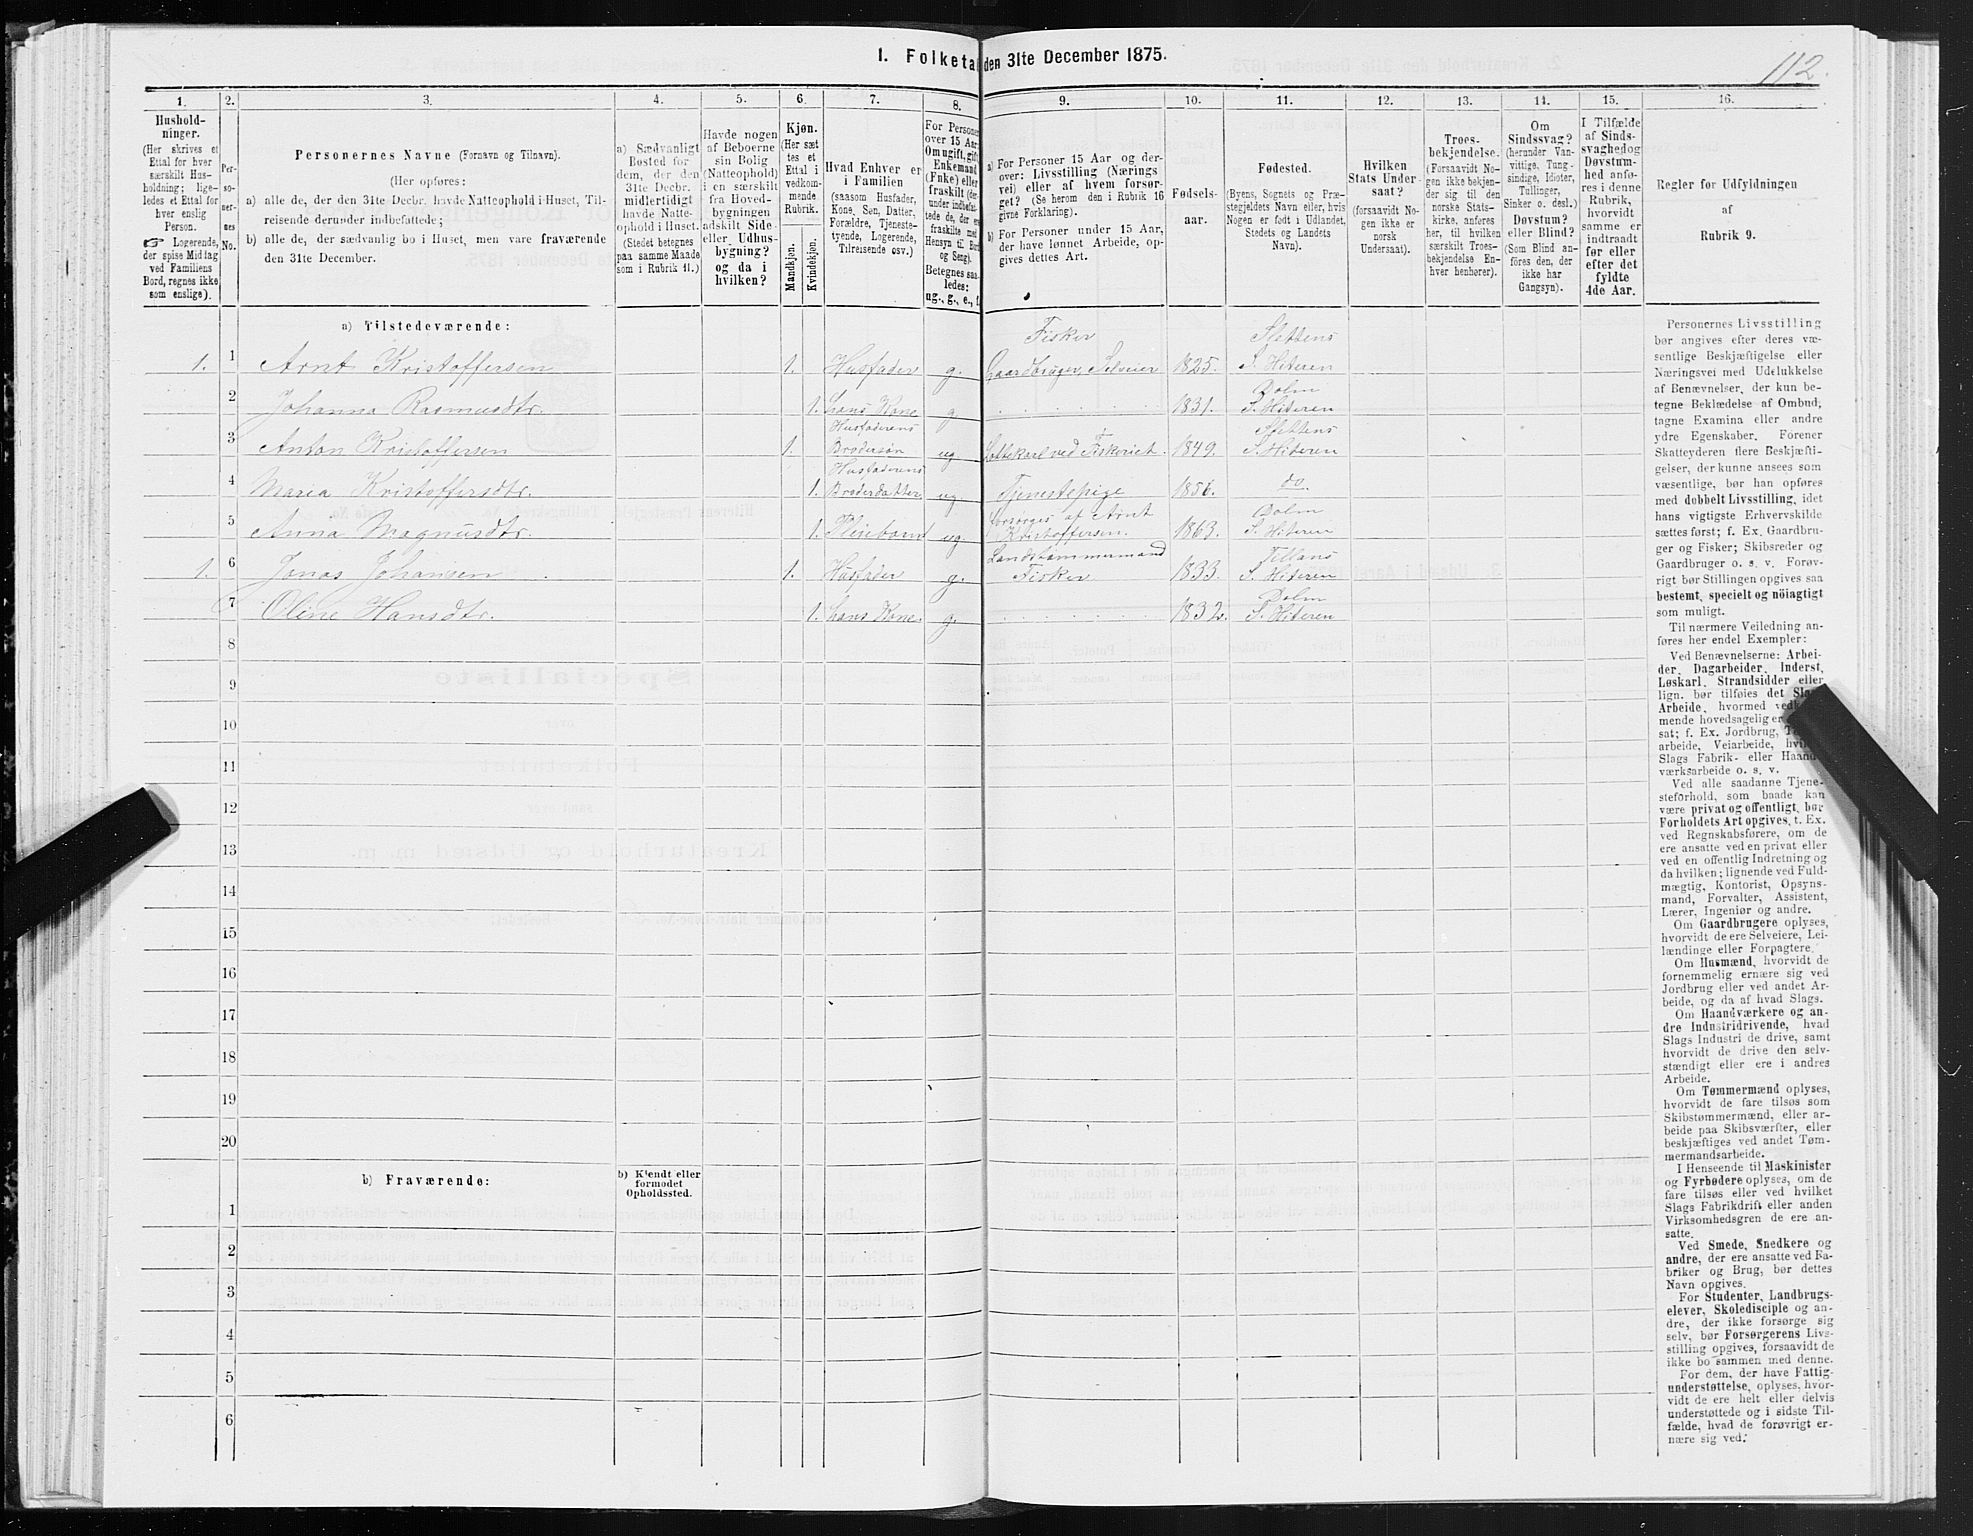 112.
1. Folketal den 31te December 1875.
1. 2. 3. 4. 5. 6. 7. 8. 9. 10. 11. 12. 13. 14. 15. 16.
Hushold-
ninger.
(Her skrives et
Ettal for hver
særskilt Hus-
holdning; lige-
ledes et Ettal for
hver enslig
Person.
☞ Logerende,
der spise Middag
ved Familiens
Bord, regnes ikke
som enslige).
Per-
so-
ner-
nes
No.
Personernes Navne (Fornavn og Tilnavn).
(Her opføres:
a) alle de, der den 31te Decbr. havde Natteophold i Huset, Til-
reisende derunder indbefattede;
b) alle de, der sædvanlig bo i Huset, men vare fraværende
den 31te December.
a) Sædvanligt
Bosted for
dem, der den
31te Decbr.
midlertidigt
havde Natte-
ophold i Huset.
(Stedet betegnes
paa samme Maade
som i Rubrik 11.)
Havde nogen
af Beboerne
sin Bolig
(Natteophold)
i en særskilt
fra Hoved-
bygningen
adskilt Side-
eller Udhus-
bygning?
og da i
hvilken?
Kjøn.
(Her sæt
tes et
Ettal i
vedkom-
mende
Rubrik.
Mandkjøn.
Kvindekjøn.
Hvad Enhver er
i Familien
(saasom Husfader,
Kone, Søn, Datter,
Forældre, Tjeneste-
tyende, Logerende,
Tilreisende osv.)
For Personer
over 15 Aar:
Om ugift, gift,
Enkemand
(Enke) eller
fraskilt
Betegnes saa-
ledes:
ug., g., e., f.
a) For Personer 15 Aar og der-
over: Livsstilling (Nærings
vei) eller af hvem forsør-
get? (Se herom den i Rubrik 16
givne Forklaring).
b) For Personer under 15 Aar,
der have lønnet Arbeide, op-
gives dettes Art.
Fødsels-
aar.
Fødested.
(Byens, Sognets og Præ-
stegjeldets Navn eller, hvis
Nogen er født i Udlandet,
Stedets og Landets
Navn).
Hvilken
Stats Under-
saat?
(forsaavidt No-
gen ikke er
norsk
Undersaat).
Troes-
bekjendelse.
(Forsaavidt No-
gen ikke bekjen-
der sig til den
norske Stats-
kirke, anføres
her, til hvilken
særskilt Troes-
bekjendelse En-
hver henhører).
Om
Sindssvag?
(herunder Van-
vittige, Tung-
sindige, Idioter,
Tullinger,
Sinker o. desl.)
Døvstum?
eller Blind?
(Som Blind an-
føres den, der
ikke har
Gangsyn).
I Tilfælde
af Sinds-
svaghed og
Døvstum-
hed anfø-
res i denne
Rubrik,
hvorvidt
samme er
indtraadt
før eller
efter det
fyldte
4de Aar.
Regler for Udfyldningen
af
Rubrik 9.
a) Tilstedeværende:
Fisker Slettens
1. 1 Arnt Kristoffersen 1. Husfader g. Gaardbruger, Selveier 1825. S. Hiteren
Dolm
2 Johanna Rasmusdtr. 1. hans Kone g. 1831. S. Hiteren
Husfaderens Slettens
3 Anton Kristoffersen 1. Brodersøn ug. ved Fiskeriet. 1849. S. Hiteren
Husfaderens
4 Maria Kristoffersdtr. 1. Broderdatter ug. Tjenestepige 1856. do.
forsørges af Arnt Dolm
5 Anna Magnusdtr. 1. Pleiebarn ug. Kristoffersen. 1863. S. Hiteren
Landstømmermand Tillans
1. 6 Jonas Johansen 1. Husfader g. Fisker 1833. S. Hiteren
Dolm
7 Oline Hansdtr. 1. hans Kone. g. 1832. S. Hiteren
8
9
10
11
12
13
14
15
16
17
18
19
20
b) Fraværende:
b) Kjendt eller
formodet
Opholdssted.
1
2
3
4
5
6
Personernes Livsstilling
bør angives efter deres væ-
sentlige Beskjæftigelse eller
Næringsvei med Udelukkelse
af Benævnelser, der kun be-
tegne Beklædelse af Ombud,
tagne Examina eller andre
ydre Egenskaber. Forener
Skatteyderen flere Beskjæfti-
gelser, der kunne ansees som
væsentlige, bør han opføres
med dobbelt Livsstilling, idet
hans vigtigste Erhvervskilde
sættes først; f. Ex. Gaardbru-
ger og Fisker; Skibsreder og
Gaardbruger o. s. v. Forøv-
rigt bør Stillingen opgives saa
bestemt, specielt og nöiagtigt
som muligt.
Til nærmere Veiledning an-
føres her endel Exempler:
Ved Benævnelserne: Arbei-
der, Dagarbeider, Inderst,
Løskarl, Strandsidder eller
lign. bør tilføies det Slags
Arbeide, hvormed vedkom-
mende hovedsagelig er
sat; f. Ex. Jordbrug,
arbeide, Veiarbeide, hvilket
Slags Fabrik- eller Haand-
værksarbeide o. s. v.
Ved alle saadanne Tjene-
steforhold, som baade kan
være privat og offentligt, bør
Forholdets Art opgives, t. Ex.
ved Regnskabsførere, om de
ere ansatte ved en privat eller
ved en offentlig Indretning og
da hvilken; lignende ved Fuld-
mægtig, Kontorist, Opsyns-
mand, Forvalter, Assistent,
Lærer, Ingeniør og andre.
Om Gaardbrugere oplyses,
hvorvidt de ere Selveiere, Lei-
lændinge eller Forpagtere.
Om Husmænd, hvorvidt de
fornemmelig ernære sig ved
Jordbrug eller ved andet Ar-
beide, og da af hvad Slags.
Om Haandværkere og an-
dre Industridrivende, hvad
Slags Industri de drive, samt
hvorvidt de drive den selv-
stændigt eller ere i andres
Arbeide.
Om Tømmermænd oplyses,
hvorvidt de fare tilsøs som
Skibstømmermænd, eller ar-
beide paa Skibsværfter, eller
beskjæftiges ved andet Tøm-
mermandsarbeide.
I Henseende til Maskinister
og Fyrbødere oplyses, om de
fare tilsøs eller ved hvilket
Slags Fabrikdrift eller anden
Virksomhedsgren de ere an-
satte.
Ved Smede, Snedkere og
andre, der ere ansatte ved Fa-
briker og Brug, bør dettes
Navn opgives.
For Studenter, Landbrugs-
elever, Skoledisciple og an-
dre, der ikke forsørge sig
selv, bør Forsørgerens Livs-
stilling opgives, forsaavidt de
ikke bo sammen med denne.
For dem, der have Fattig-
understøttelse, oplyses, hvor-
vidt de ere helt eller delvis
understøttede og i sidste Til-
fælde, hvad de forøvrigt er-
nære sig ved.